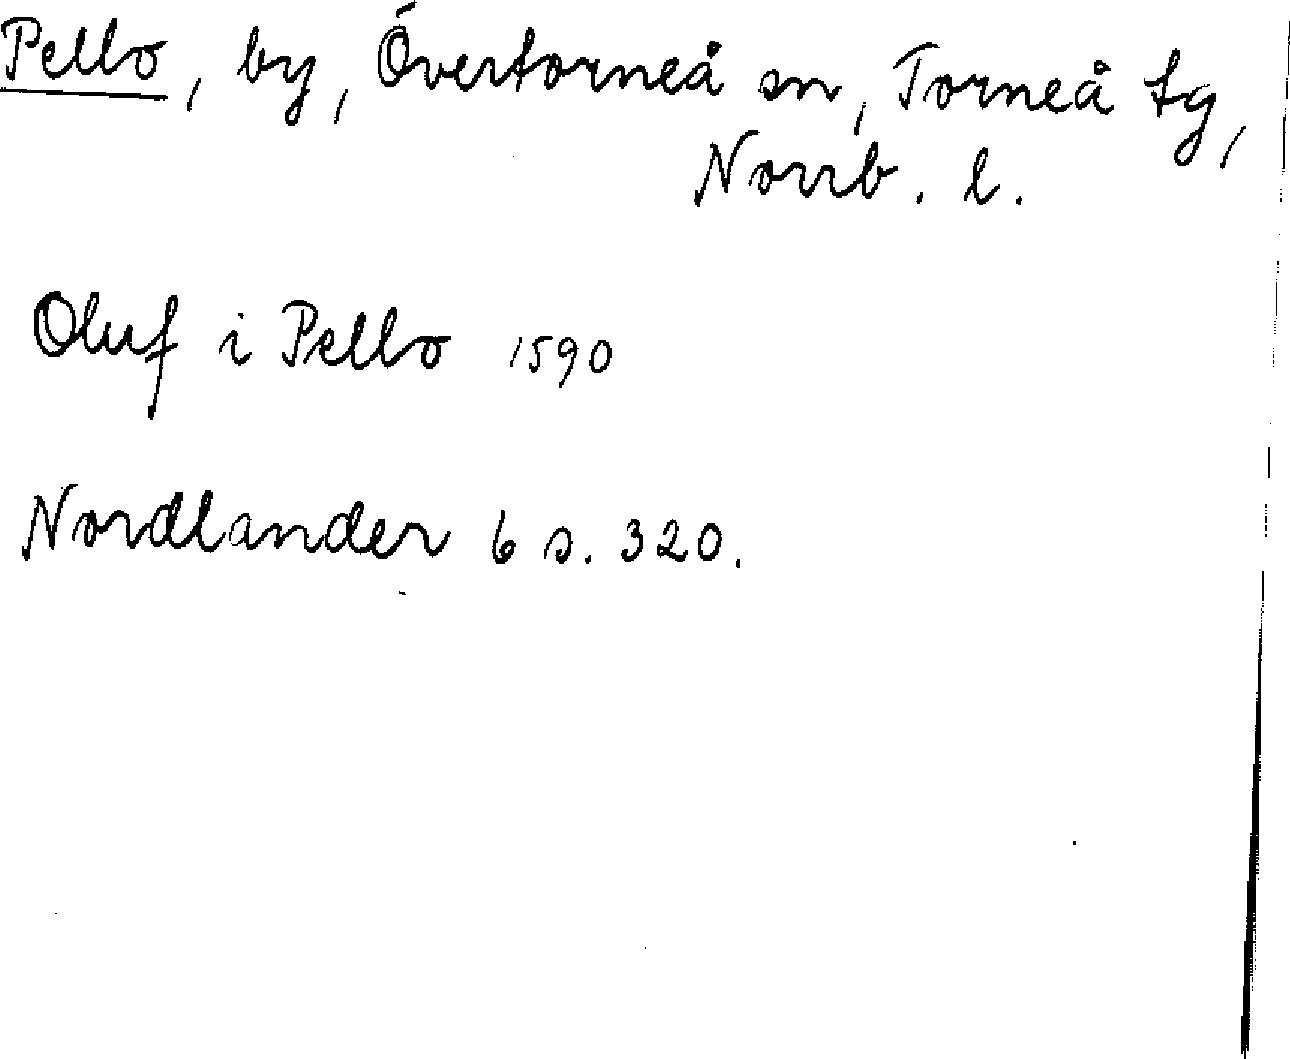 Pello, by, Övertorneå sn, Torneå tg,
Norrb. l.
Oluf i Pello 1590
Nordlander 6 s. 320.